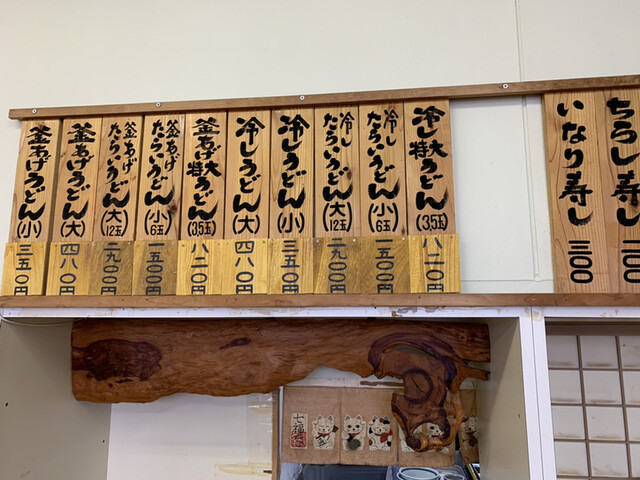 ちらし寿し 三〇〇
いなり寿し 三〇〇
冷し特大うどん(3,5玉) 八二〇円
冷したらいうどん(小)6玉 一五〇〇円
冷したらいうどん(大)12玉 二九〇〇円
冷しうどん(小) 三五〇円
冷しうどん(大) 四八〇円
釜あげ特大うどん(3,5玉) 八二〇円
釜あげたらいうどん(小)6玉 一五〇〇円
釜あげたらいうどん(大)12玉 二九〇〇円
釜あげうどん(大) 四八〇円
釜あげうどん(小) 三五〇円
七福